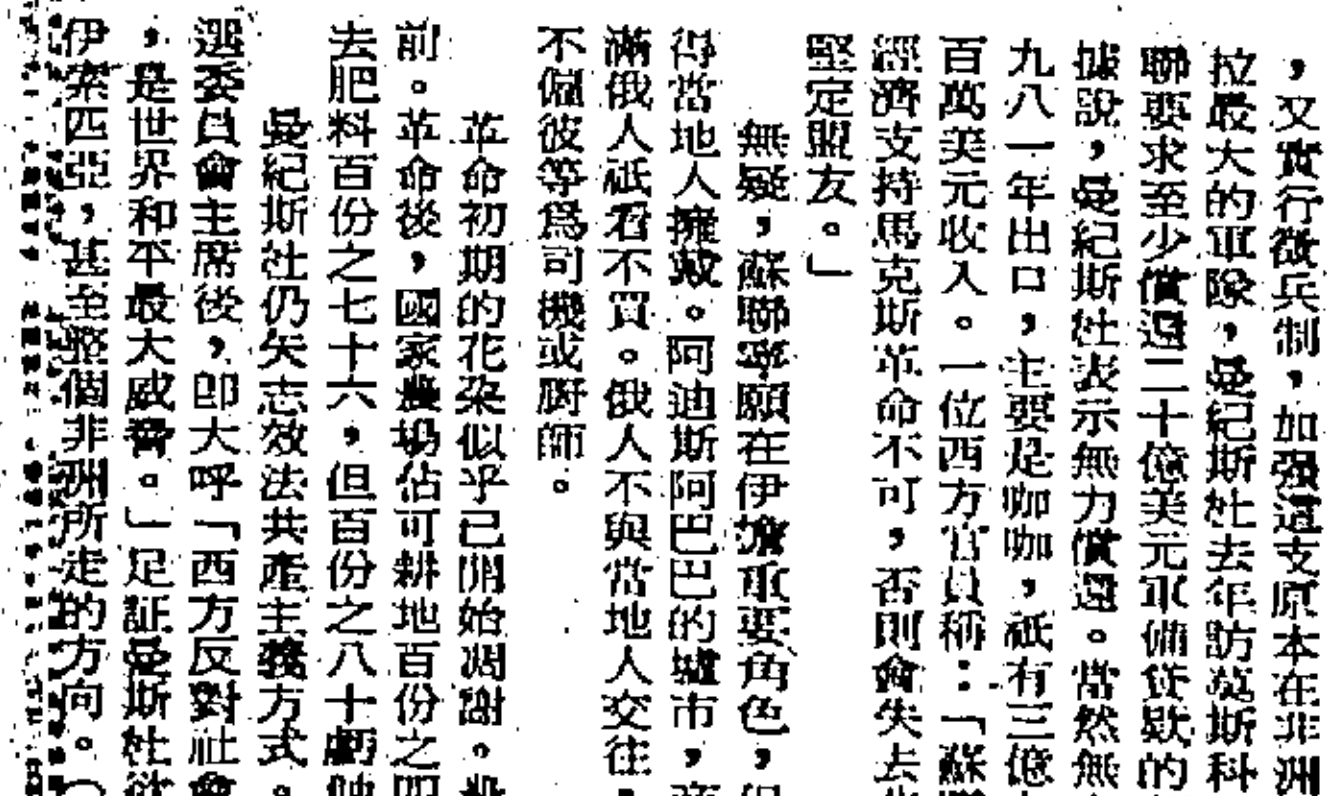 ，又實行徵兵制，加强這支原本在非洲
拉最大的軍隊，曼紀斯杜去年訪莫斯科
聯要求至少償還二十億美元軍備貨欵的
據說，曼紀斯杜表示無力償還。當然無
九八一年出口，主要是咖啡，祇有三億
百萬美元收入。一位西方官員稱：「蘇聯
經濟支持馬克斯革命不可，否則會失去
堅定盟友。」
無疑，蘇聯寧願在伊擔重要角色，但
得當地人擁戴。阿迪斯阿巴巴的墟市，
滿俄人祇看不買。俄人不與當地人交往，
不僱彼等爲司機或厨師。
革命初期的花朶似乎已開始凋謝。
前。革命後，國家農場佔可耕地百份之四
去肥料百份之七十六，但百份之八十虧蝕
曼紀斯杜仍矢志效法共產主義方式。
選委員會主席後，即大呼「西方反對社會
，是世界和平最大威脅。」足証曼斯杜欲
伊索匹亞，甚至整個非洲所走的方向。（